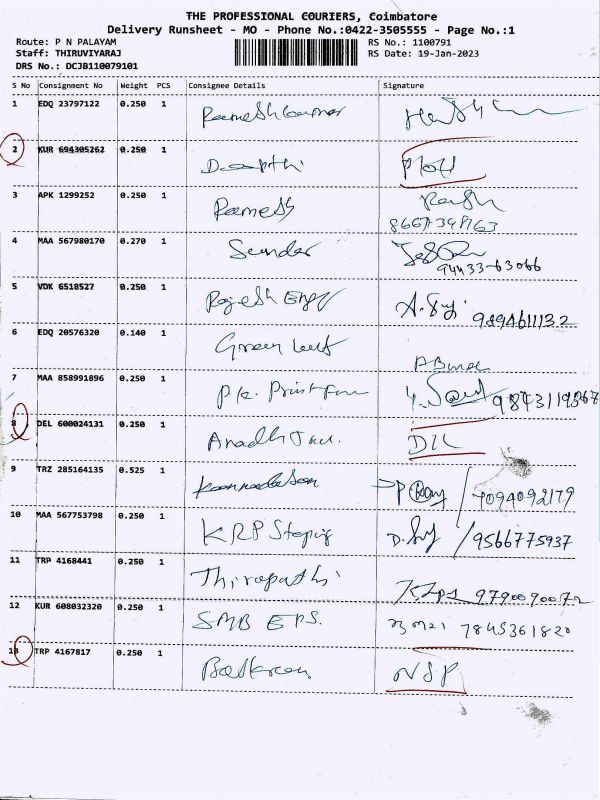 THE PROFESSIONAL COURIERS, Coimbatore
Delivery Runsheet - MO - Phone No.:0422-3505555 - Page No.:1
Route: P N PALAYAM RS No.: 1100791
Staff: THIRUVIYARAJ RS Date: 19-Jan-2023
DRS No.: DCJB110079101
S No Consignment No Weight PCS Consignee Details Signature
1 EDQ 23797122 0.250 1
Rameshkumar
2 KUR 694305262 0.250 1
3 APK 1299252 0.250 1
Ramesh
4 MAA 567980170 0.270 1
Sundar
94433-63066
5 VDK 6518527 0.250 1
Rajesh Engg
9894611132
6 EDQ 20576320 0.140 1
Green leaf
7 MAA 858991896 0.250 1
8 DEL 600024131 0.250 1
D/L
9 TRZ 285164135 0.525 1
Kannadasan
10 MAA 567753798 0.250 1
KRP 9566775937
11 TRP 4168441 0.250 1
Thirupathi
12 KUR 608032320 0.250 1
SMB EPS. 7845361820
13 TRP 4167817 0.250 1
Baskaran NSP